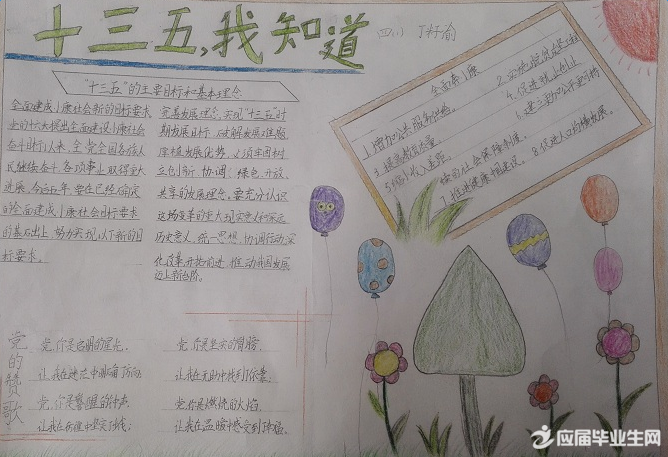 十三五,我知道
四(1) 丁梓渝
"十三五"的主要目标和基本理念
全面建成小康社会新的目标要求
党的十六大提出全面建设小康社会
奋斗目标以来,全党全国各族人
民继续奋斗,各项事业取得重大
进展。今后五年,要在已经确定
的全面建成小康社会目标要求
的基础上,努力实现以下新的目
标要求。
完善发展理念,实现"十三五"时
期发展目标,破解发展难题
厚植发展优势,必须牢固树
立创新、协调、绿色、开放、
共享的发展理念,要充分认识
这场变革的重大现实意义和深远
历史意义,统一思想,协调行动,深
化改革,开拓前进,推动我国发展
迈上新台阶。
全面奔小康
1.增加公共服务供给。
3.提高教育质量。
4.促进就业创业
5.缩小收入差距
7.推进健康中国建设。
8.促进人口均衡发展。
党的赞歌
党,你是启明的星光,
让我在迷茫中明确了方向;
党,你是警醒的钟声,
党,你是坚实的肩膀,
让我在无助中找到了依靠;
党,你是燃烧的火焰,
让我在温暖中感受到幸福。
应届毕业生网